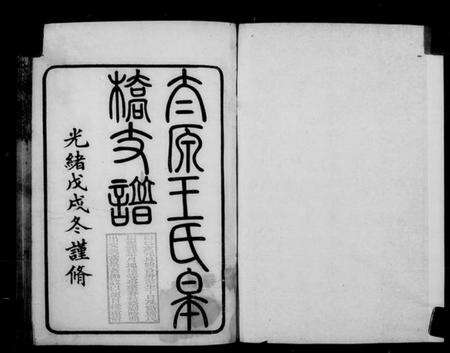 太原王氏皋
橋支譜
光緒戊戌冬謹脩